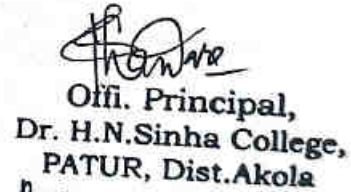 Offi. Principal,
Dr. H.N.Sinha College,
PATUR, Dist.Akola